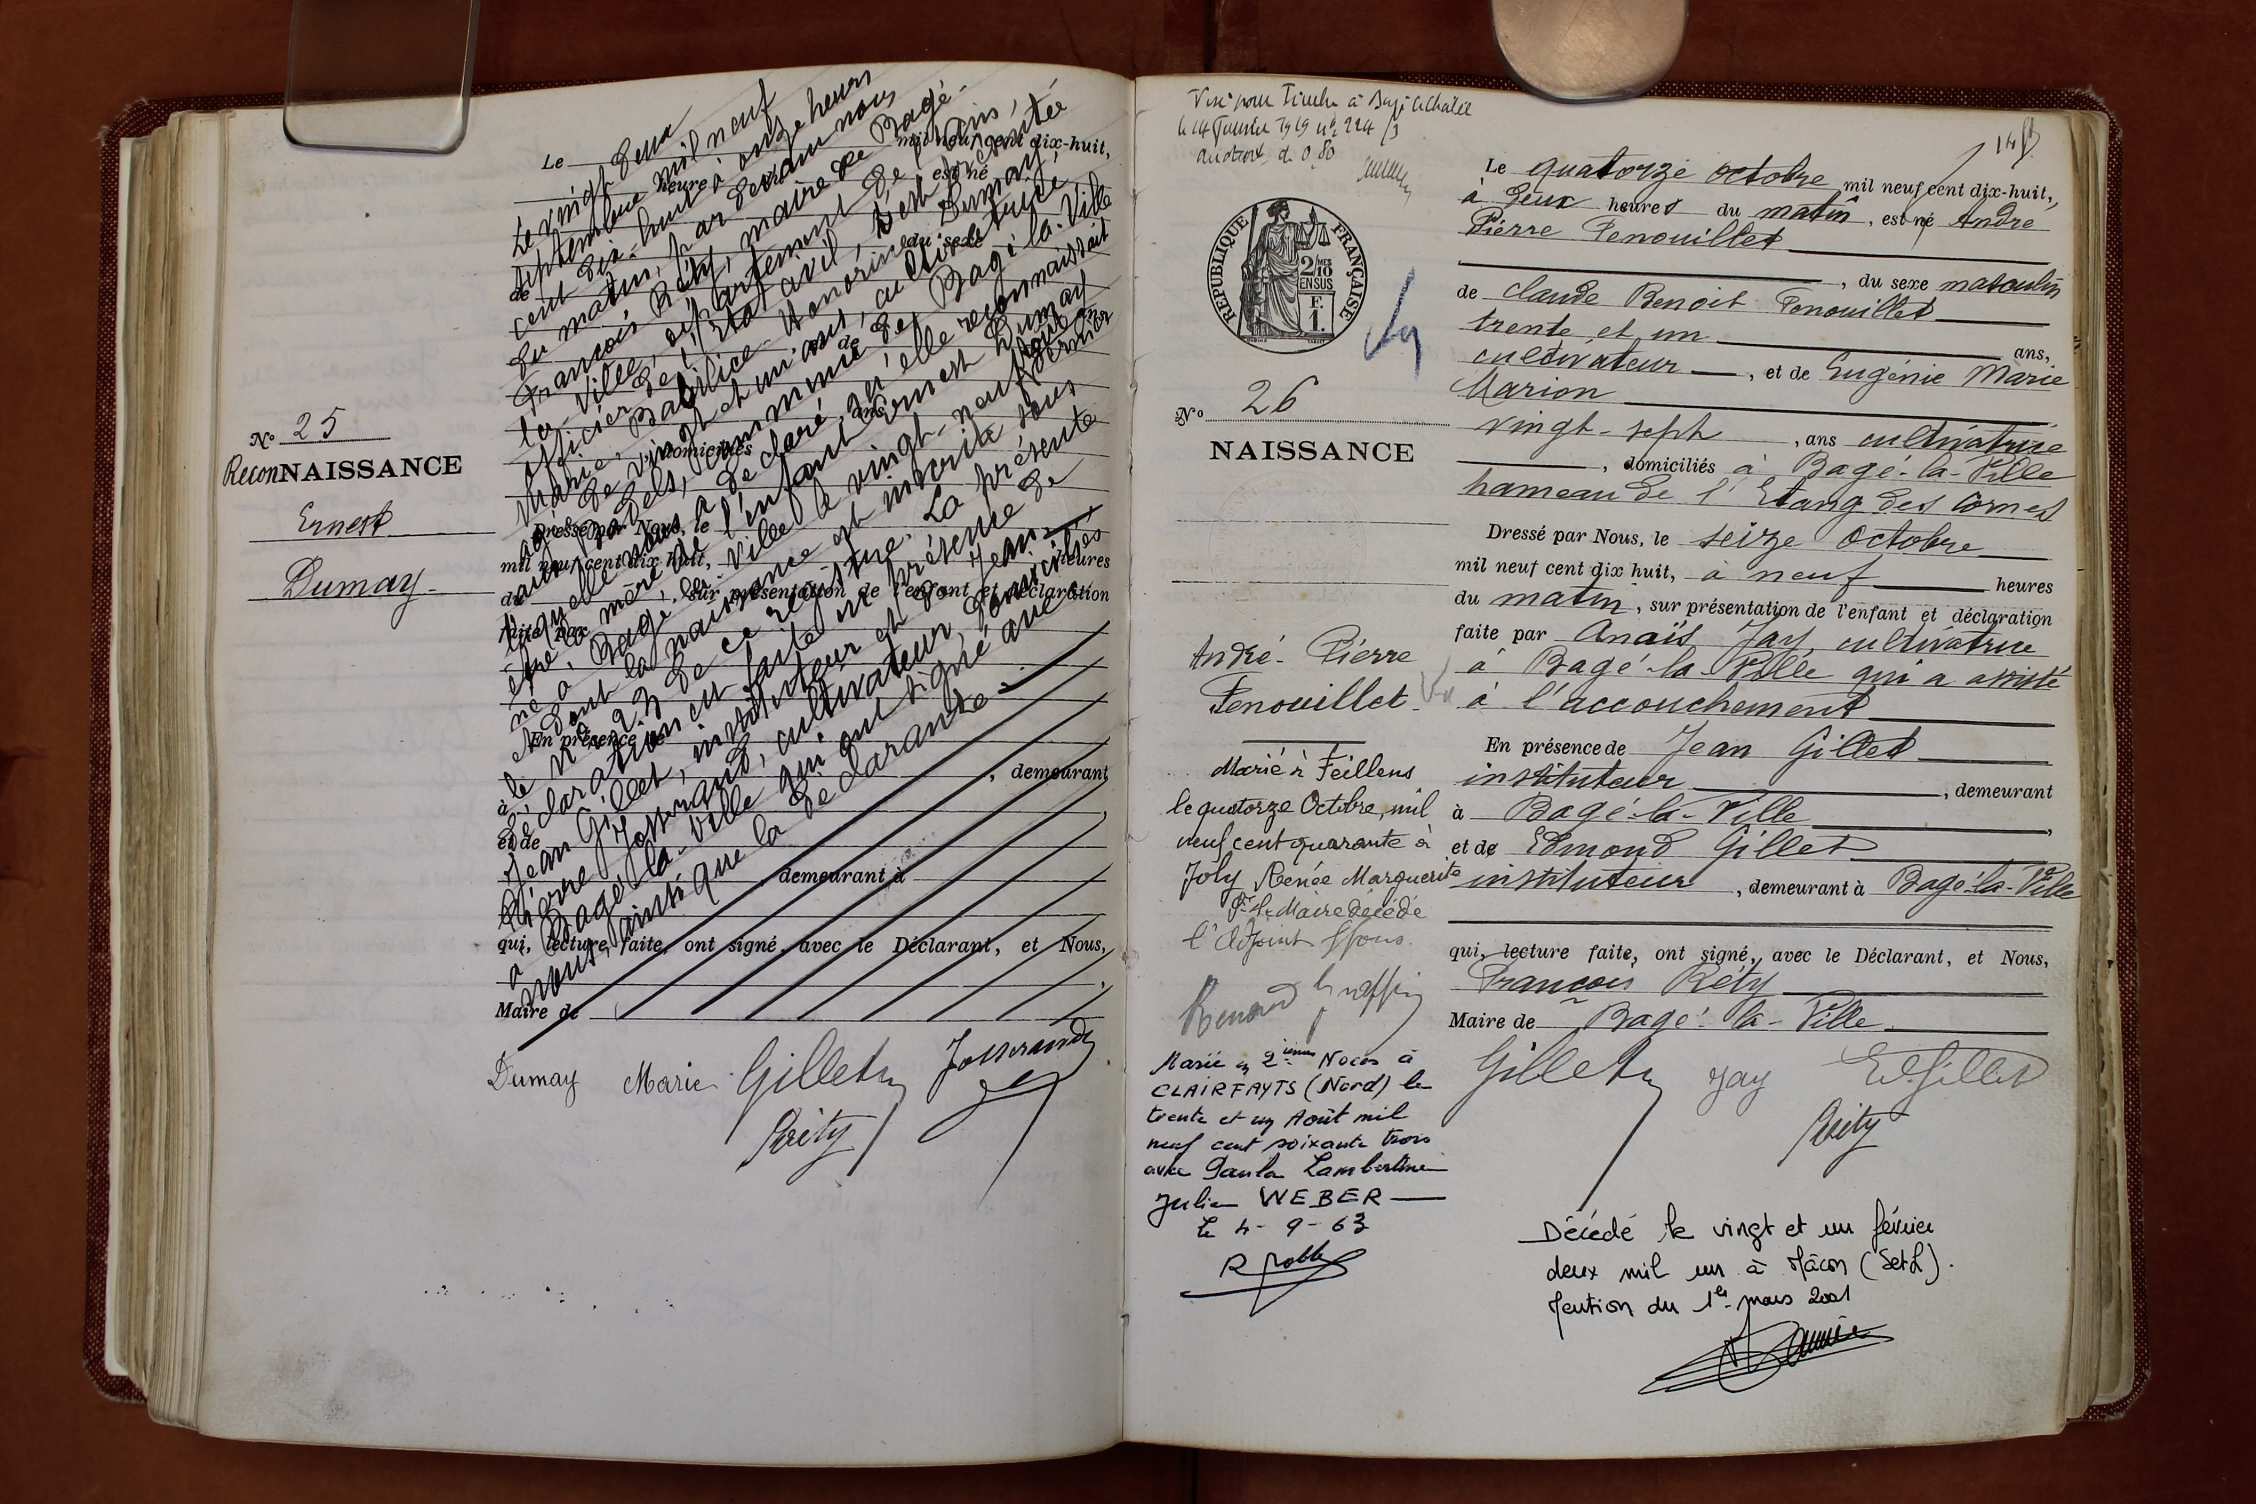 Nº 25
ReconNAISSANCE
Ernest
Dumay
Le mil neuf cent dix-huit,
heure est né
de du sexe
de
ans
domiciliés
Dressé par Nous, le
mil neuf cent dix huit, heures
du , sur présentation de l'enfant et déclaration
faite par
En présence de
, demeurant
à
et de
, demeurant à
qui, lecture faite, ont signé, avec le Déclarant, et Nous,
Maire de
Le vingt-deux
septembre mil neuf
cent dix-huit à onze heures
du matin, par devant nous
François Réty, maire de Bagé-
la-Ville, département de l'Ain,
officier de l'état civil, s'est présentée
Marie Honorine Dumay,
âgée de vingt et un ans, cultivatrice
commune de Bagé-la-Ville
laquelle nous a déclaré qu'elle reconnaissait
être la mère de l'enfant Ernest Dumay
né à Bagé-la-Ville le vingt-neuf
et dont la naissance est inscrite sous
le Nº 23 de ce registre. La présente
déclaration est faite en présence de
Jean Gillet, instituteur et de Jean-
Pierre Josserand, cultivateur, domiciliés
à Bagé-la-Ville qui ont signé avec
nous, ainsi que la déclarante.
Dumay Marie Gillet Josserand
Réty
Visé pour Timbre à Bagé le Châtel
le 14 Janvier 1919 nº 224
au droit de 0,80
REPUBLIQUE FRANÇAISE
2/10 MES
EN SUS
F.
1.
Nº 26
NAISSANCE
André-Pierre
Fenouillet
Marié à Feillens
le quatorze Octobre, mil
neuf cent quarante à
Joly Renée Marguerite
Pr le Maire décédé
l'Adjoint
Marié en 2ièmes Noces à
CLAIRFAYTS (Nord) le
trente et un Août mil
neuf cent soixante trois
avec Paula Lambertine
Julien WEBER
Le 4-9-63
Le quatorze octobre mil neuf cent dix-huit,
à deux heures du matin, est né André
Pierre Fenouillet
, du sexe masculin
de Claude Benoit Fenouillet
trente et un ans,
cultivateur, et de Eugénie Marie
Marion
vingt-sept, ans cultivatrice
, domiciliés à Bagé-la-Ville
hameau de l'Etang des Cornes
Dressé par Nous, le seize octobre
mil neuf cent dix huit, à neuf heures
du matin, sur présentation de l'enfant et déclaration
faite par Anaïs Jay cultivatrice
à Bagé-la-Ville qui a assisté
à l'accouchement
En présence de Jean Gillet
instituteur, demeurant
à Bagé-la-Ville,
et de Edmond Gillet
instituteur, demeurant à Bagé-la-Ville
qui, lecture faite, ont signé, avec le Déclarant, et Nous,
François Réty
Maire de Bagé-la-Ville
Gillet Jay Ed. Gillet
Réty
Décédé le vingt et un février
deux mil un à Mâcon (S et L).
Mention du 1er mars 2001